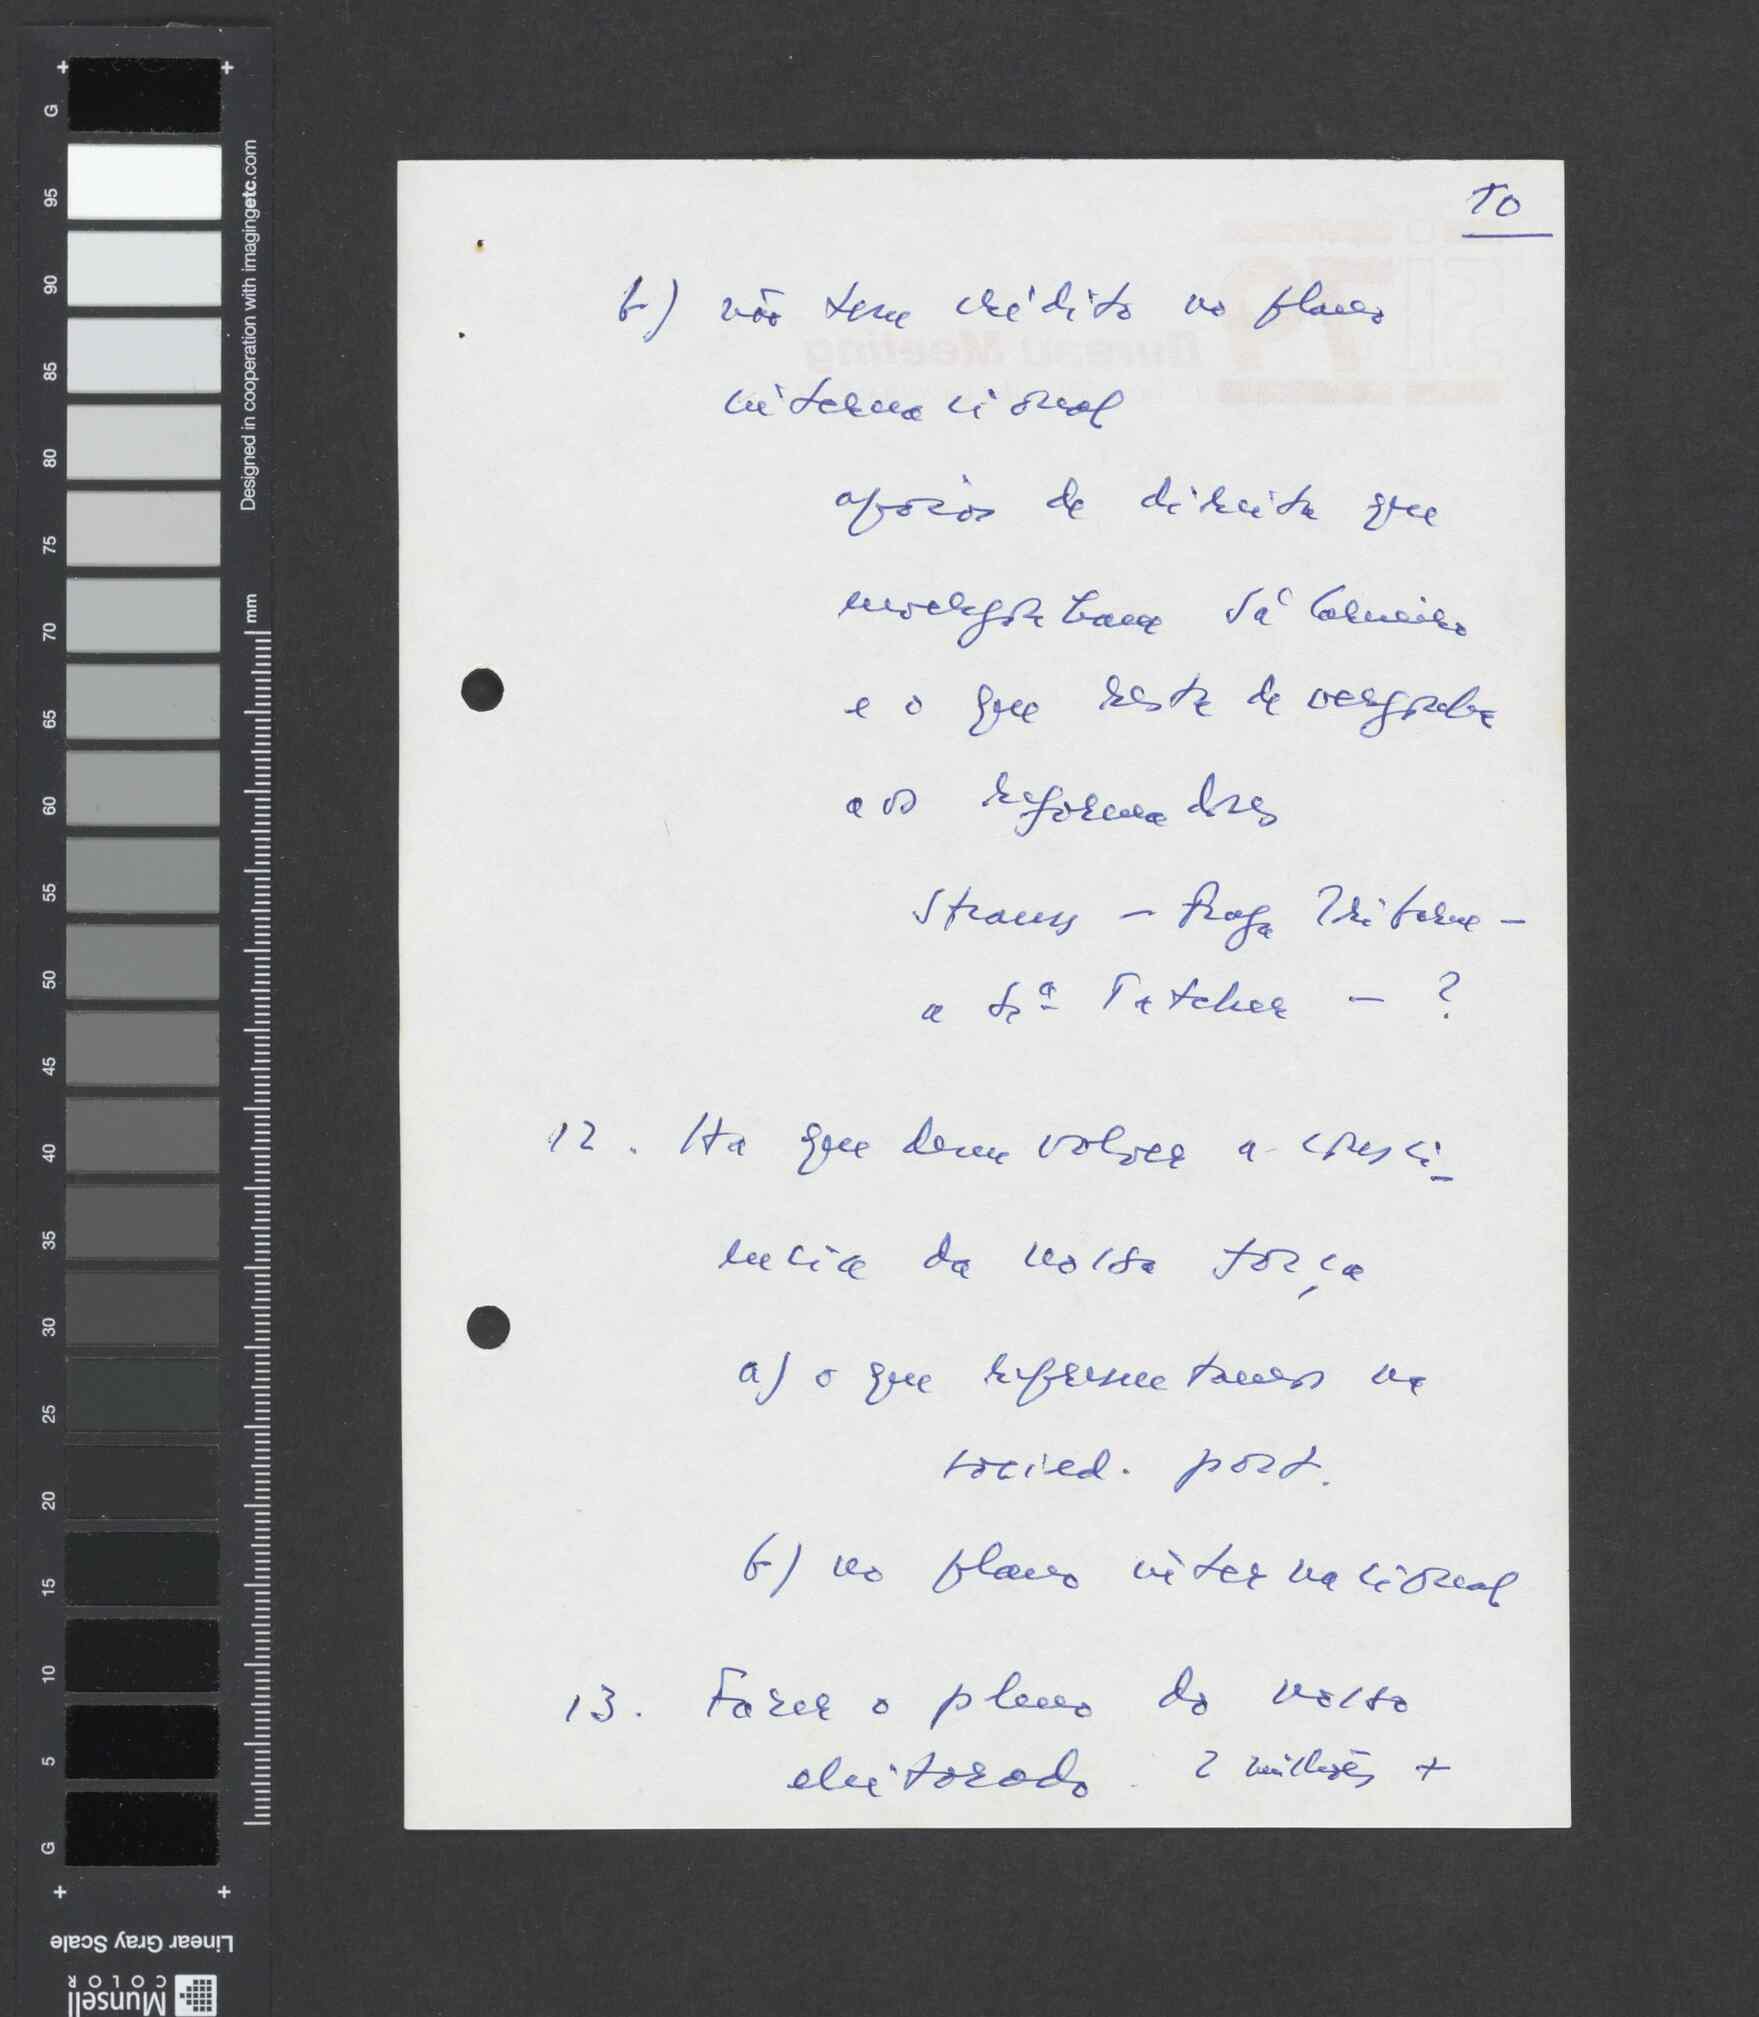 10
b) não tem crédito no plano
internacional
apoios de direita que
envergonham Sá Carneiro
e o que resta de vergonha
aos reformadores
Strauss – Fraga Iribarne –
a Srª Tatcher – ?
12. Ha que desenvolver a consci-
encia da nossa força
a) o que representamos na
socied. port.
b) no plano internacional
13. Fazer o pleno do nosso
eleitorado. 2 milhões +
Bureau Meeting
G
95
90
85
80
75
70
65
60
55
50
45
40
35
30
25
20
15
10
5
G
mm
Designed in cooperation with imagingetc.com
Linear Gray Scale
Munsell
COLOR